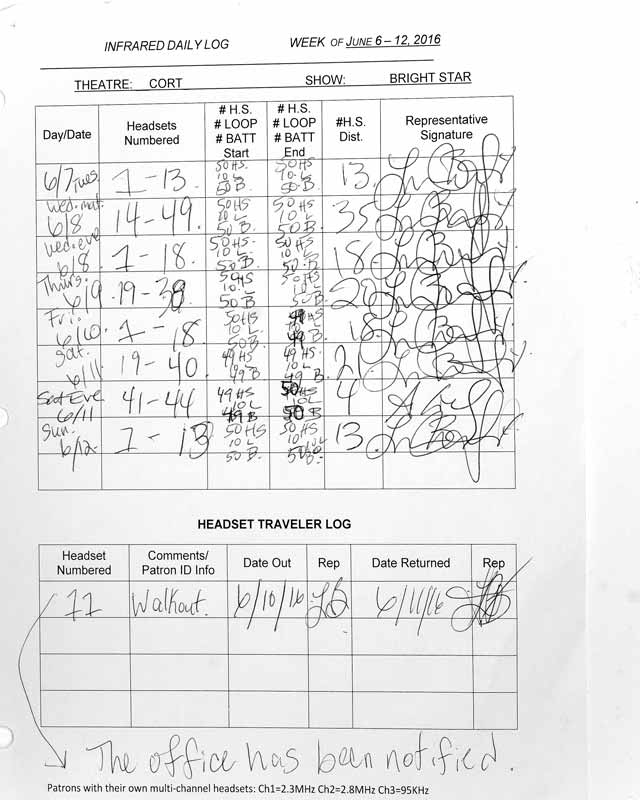 INFRARED DAILY LOG WEEK OF JUNE 6 – 12, 2016
THEATRE: CORT SHOW: BRIGHT STAR
Day/Date Headsets Numbered # H.S. # LOOP # BATT Start # H.S. # LOOP # BATT End #H.S. Dist. Representative Signature
6/7 Tues 1 - 13. 50 HS. 10 L 50 B. 50 HS. 10 L 50 B. 13.
Wed. mat. 6/8 14 - 49. 50 HS 10 L 50 B. 50 HS 10 L 50 B. 35
Wed. eve 6/8. 1 - 18. 50 HS. 10 L. 50 B. 50 HS. 10 L. 50 B. 18
Thurs. 6/9 19 - 38 50 HS 10 L 50 B 50 HS 10 L 50 B. 20
Fri. 6/10 1 - 18. 50 HS 10 L 50 B. 49 HS 10 L 49 B. 18
Sat. 6/11 19 - 40 49 HS 10 L 49 B 49 HS. 10 L 49 B
Sat Eve 6/11 41 - 44 49 HS 10 L 49 B 50 HS 10 L 50 B 4
Sun. 6/12. 1 - 13 50 HS 10 L 50 B. 50 HS 10 L 50 B. 13
HEADSET TRAVELER LOG
Headset Numbered Comments/ Patron ID Info Date Out Rep Date Returned Rep
11 Walkout. 6/10/16 LB 6/11/16
The office has been notified.
Patrons with their own multi-channel headsets: Ch1=2.3MHz Ch2=2.8MHz Ch3=95KHz